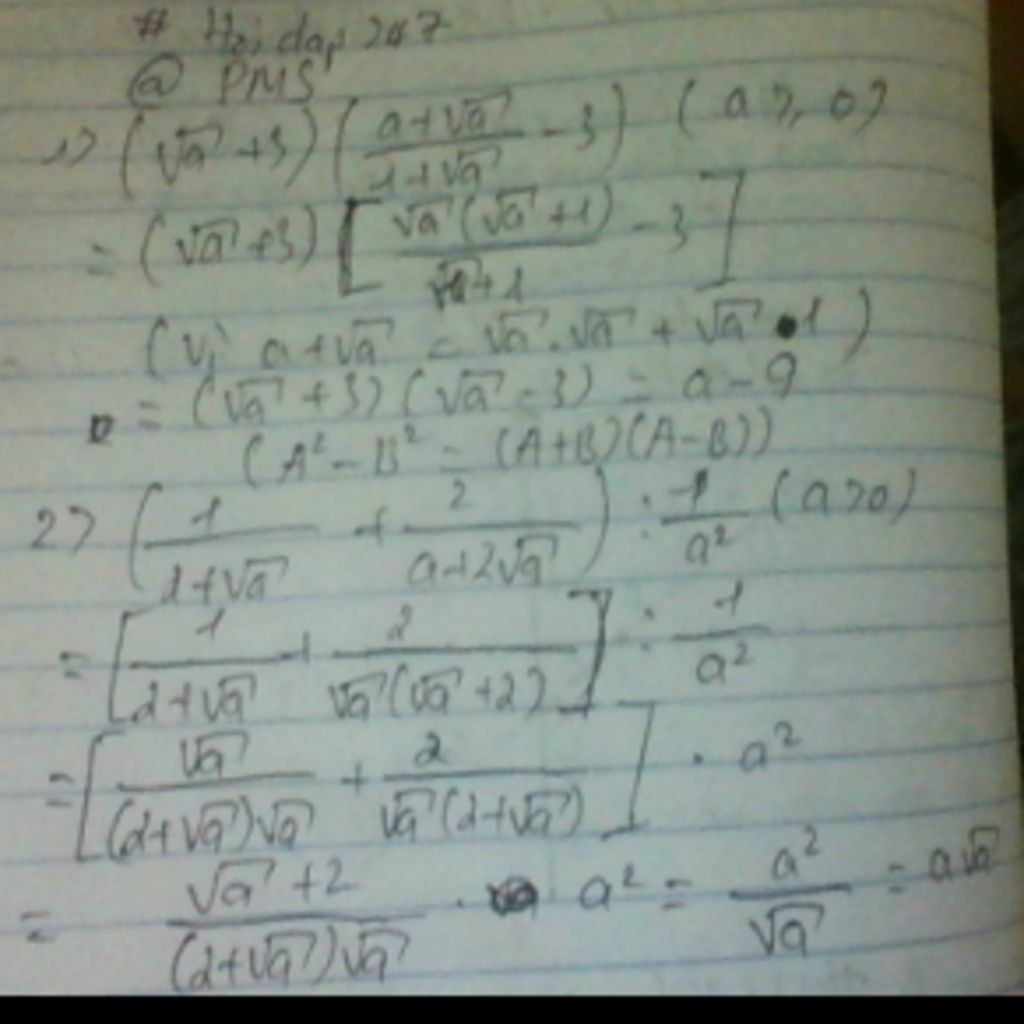 # Hỏi dap 247
@ PMS
1> (√a + 3) ( (a + √a)/(1 + √a) - 3 ) (a ≥ 0)
= (√a + 3) [ √a(√a + 1)/(√a + 1) - 3 ]
(Vì a + √a = √a . √a + √a . 1)
= (√a + 3)(√a - 3) = a - 9
(A² - B² = (A+B)(A-B))
2> ( 1/(1 + √a) + 2/(a + 2√a) ) : 1/a² (a > 0)
= [ 1/(2 + √a) + 2/(√a(√a + 2)) ] : 1/a²
= [ √a/((2 + √a)√a) + 2/(√a(2 + √a)) ] . a²
= (√a + 2)/((2 + √a)√a) . a² = a²/√a = a√a